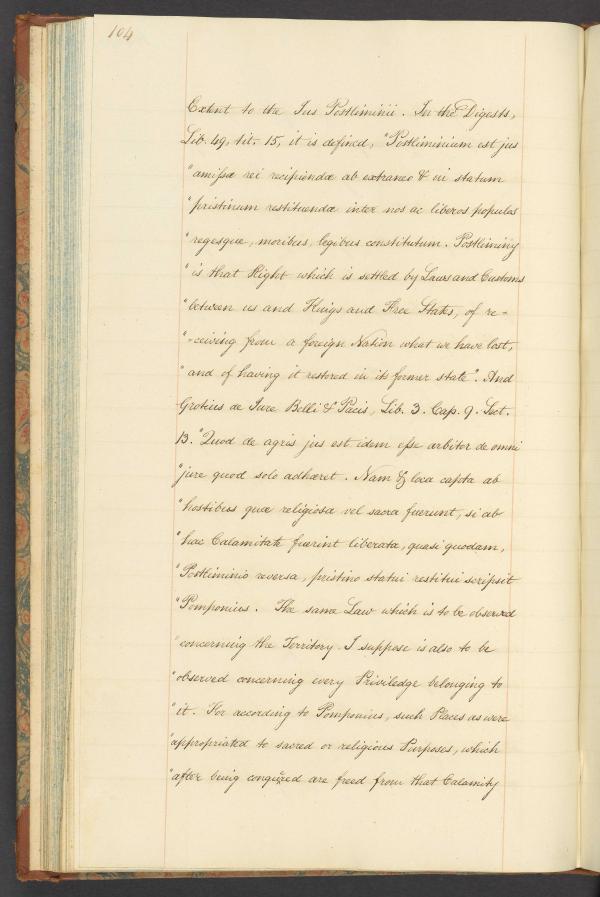 104
Extent to the Jus Postliminii. In the Digests,
Lib. 49, tit. 15, it is defined, "Postliminium est jus
"amissæ rei recipiendæ ab extraneo & in statum
"pristinum restituendæ inter nos ac liberos populos
"regesque, moribus, legibus constitutum. Postliminy
"is that Right which is settled by Laws and Customs
"between us and Kings and Free States, of re-
"-ceiving from a foreign Nation what we have lost,
"and of having it restored in its former state". And
Grotius de Jure Belli & Pacis, Lib. 3. Cap. 9. Sect.
13. "Quod de agris jus est idem esse arbitor de omni
"jure quod solo adhæret. Nam & loca capta ab
"hostibus quæ religiosa vel sacra fuerunt, si ab
"hac Calamitate fuerint liberata, quasi quodam,
"Postliminio reversa, pristino statui restitui scripsit
"Pomponius. The same Law which is to be observed
"concerning the Territory I suppose is also to be
"observed concerning every Priviledge belonging to
"it. For according to Pomponius, such Places as were
"appropriated to sacred or religious Purposes, which
"after being conquered are freed from that Calamity